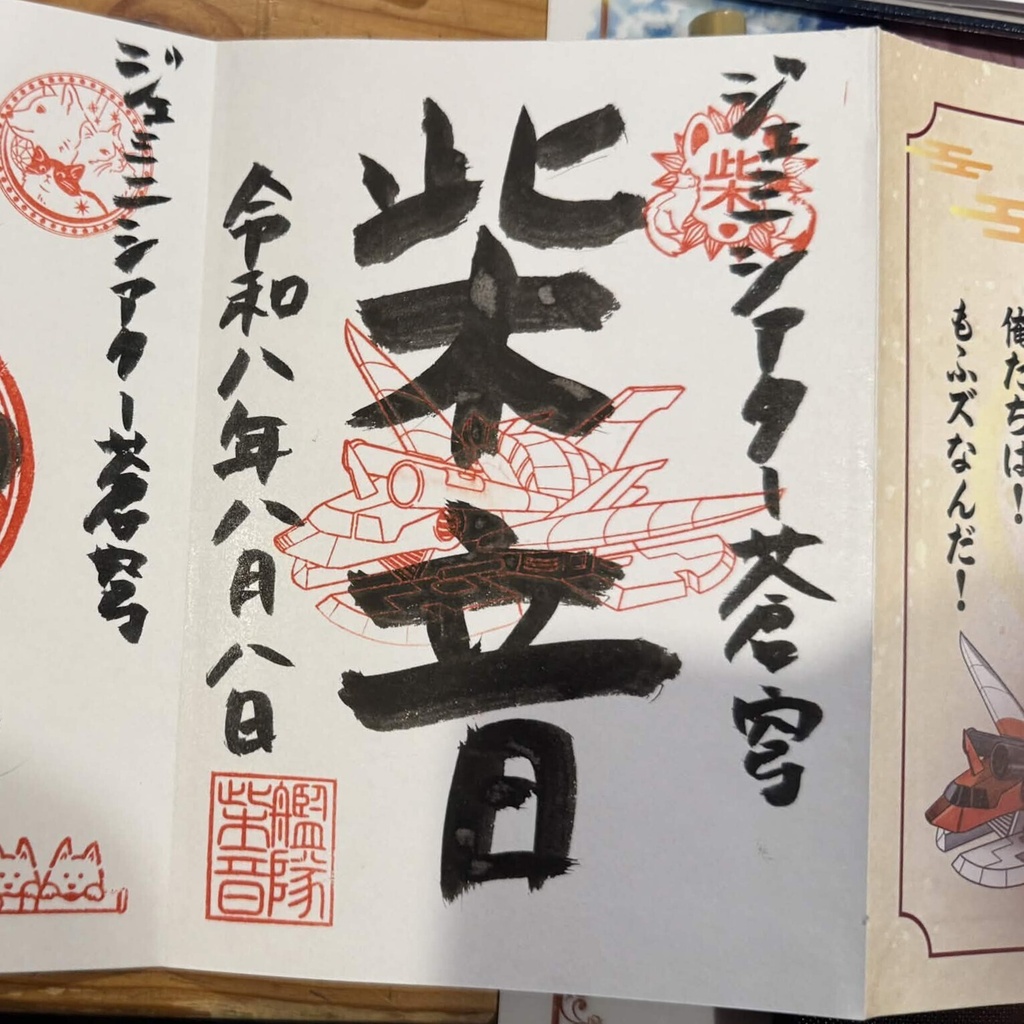 俺たちは!
もふズなんだ!
ジェミニシアター蒼穹
柴
柴音
令和八年八月八日
艦隊
柴音部
ジェミニシアター蒼穹